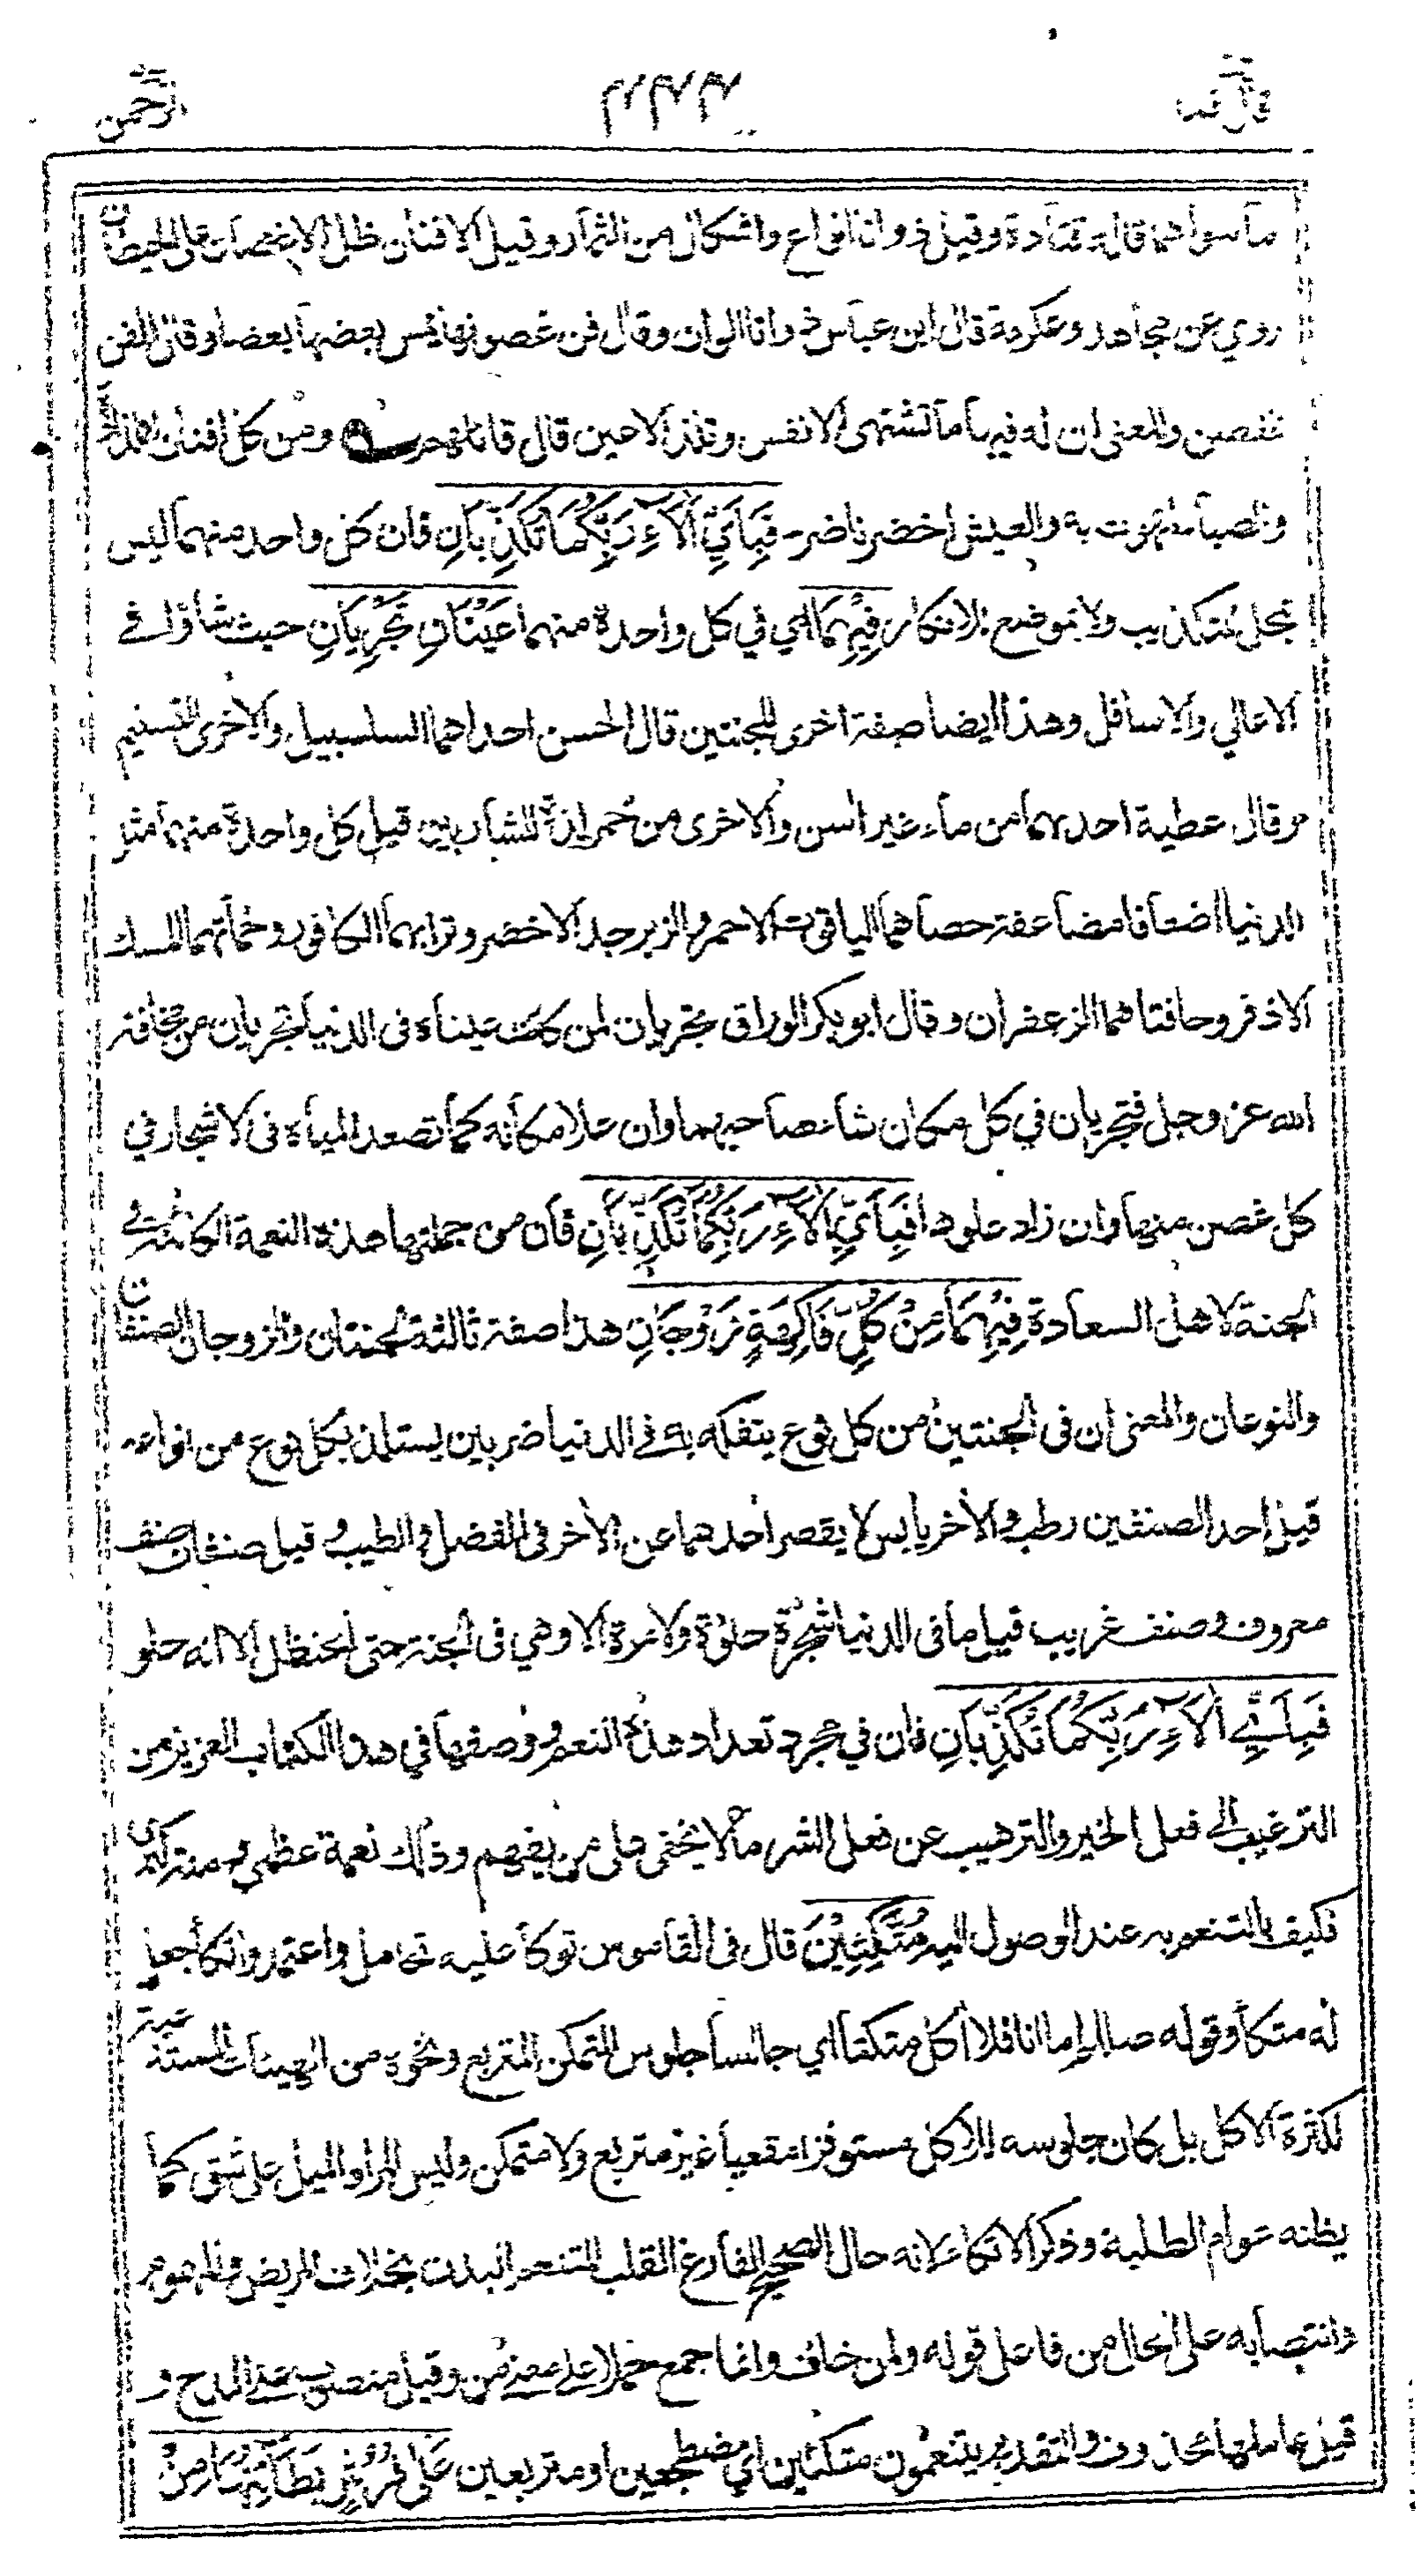 الرحمن
ما سواهما قاله قتادة وقيل ذواتا انواع واشكال من الثمار وقيل الافنان ظل الاغصان على الحيطان
روي عن مجاهد وعكرمة قال ابن عباس ذواتا الوان وقال فن غصونها يمس بعضها بعضا وقال الفن
غصن والمعنى ان له فيها ما تشتهى الانفس وتلذ الاعين قال قائلهم ومن كل افنان اللذاذة
والصبا لهوت به والعيش اخضر ناضر فَبِأَيِّ اٰلَاءِ رَبِّكُمَا تُكَذِّبَانِ فان كل واحد منهما ليس
بمحل للتكذيب ولا بموضع للانكار فِيهِمَا اي في كل واحدة منهما عَيْنَانِ تَجْرِيَانِ حيث شاؤا في
الاعالي والاسافل وهذا ايضا صفة اخرى للجنتين قال الحسن احداهما السلسبيل والاخرى التسنيم
وقال عطية احدهما من ماء غير اسن والاخرى من خمر لذة للشاربين قيل كل واحدة منهما مثل
الدنيا اضعافا مضاعفة حصاهما الياقوت الاحمر والزبرجد الاخضر وترابهما الكافور وحمأتهما المسك
الاذفر وحافتاهما الزعفران وقال ابو بكر الوراق تجريان لمن كانت عيناه فى الدنيا تجريان من مخافة
الله عز وجل فتجريان في كل مكان شاء صاحبهما وان علا مكانه كما تصعد المياه فى الاشجار في
كل غصن منها وان زاد علوها فَبِأَيِّ اٰلَاءِ رَبِّكُمَا تُكَذِّبَانِ فان من جملتها هذه النعمة الكائنة في
الجنة لاهل السعادة فِيهِمَا مِنْ كُلِّ فَاكِهَةٍ زَوْجَانِ هذا صفة ثالثة لجنتان والزوجان الصنفان
والنوعان والمعنى ان فى الجنتين من كل نوع يتفكه به فى الدنيا ضربين يستلذ بكل نوع من انواعه
قيل احد الصنفين رطب والاخر يابس لا يقصر احدهما عن الاخر فى الفضل والطيب وقيل صنفان صنف
معروف وصنف غريب قيل ما فى الدنيا شجرة حلوة ولا مرة الا وهي فى الجنة حتى الحنظل الا انه حلو
فَبِأَيِّ اٰلَاءِ رَبِّكُمَا تُكَذِّبَانِ فان في مجرد تعداد هذه النعم ووصفها في هذا الكتاب العزيز من
الترغيب الى فعل الخير والترهيب عن فعل الشر ما لا يخفى على من يفهم وذلك نعمة عظمى ومنة كبرى
فكيف بالتنعم به عند الوصول اليه مُتَّكِئِيْنَ قال فى القاموس توكأ عليه تحامل واعتمد واتكأ جعل
له متكأ وقوله صللم اما انا فلا اكل متكئا اي جالسا جلوس المتمكن المتربع ونحوه من الهيئات المستدعية
لكثرة الاكل بل كان جلوسه للاكل مستوفزا مقعيا غير متربع ولا متمكن وليس المراد الميل على شق كما
يظنه عوام الطلبة وذكر الاتكاء لانه حال الصحيح الفارغ القلب المتنعم البدن بخلاف المريض والمهموم
وانتصابه على الحال من فاعل قوله ولمن خاف وانما جمع حملا على معنى من وقيل منصوب على المدح و
قيل عاملها محذوف والتقدير يتنعمون متكئين اي مضطجعين او متربعين عَلٰى فُرُشٍ بَطَائِنُهَا مِنْ